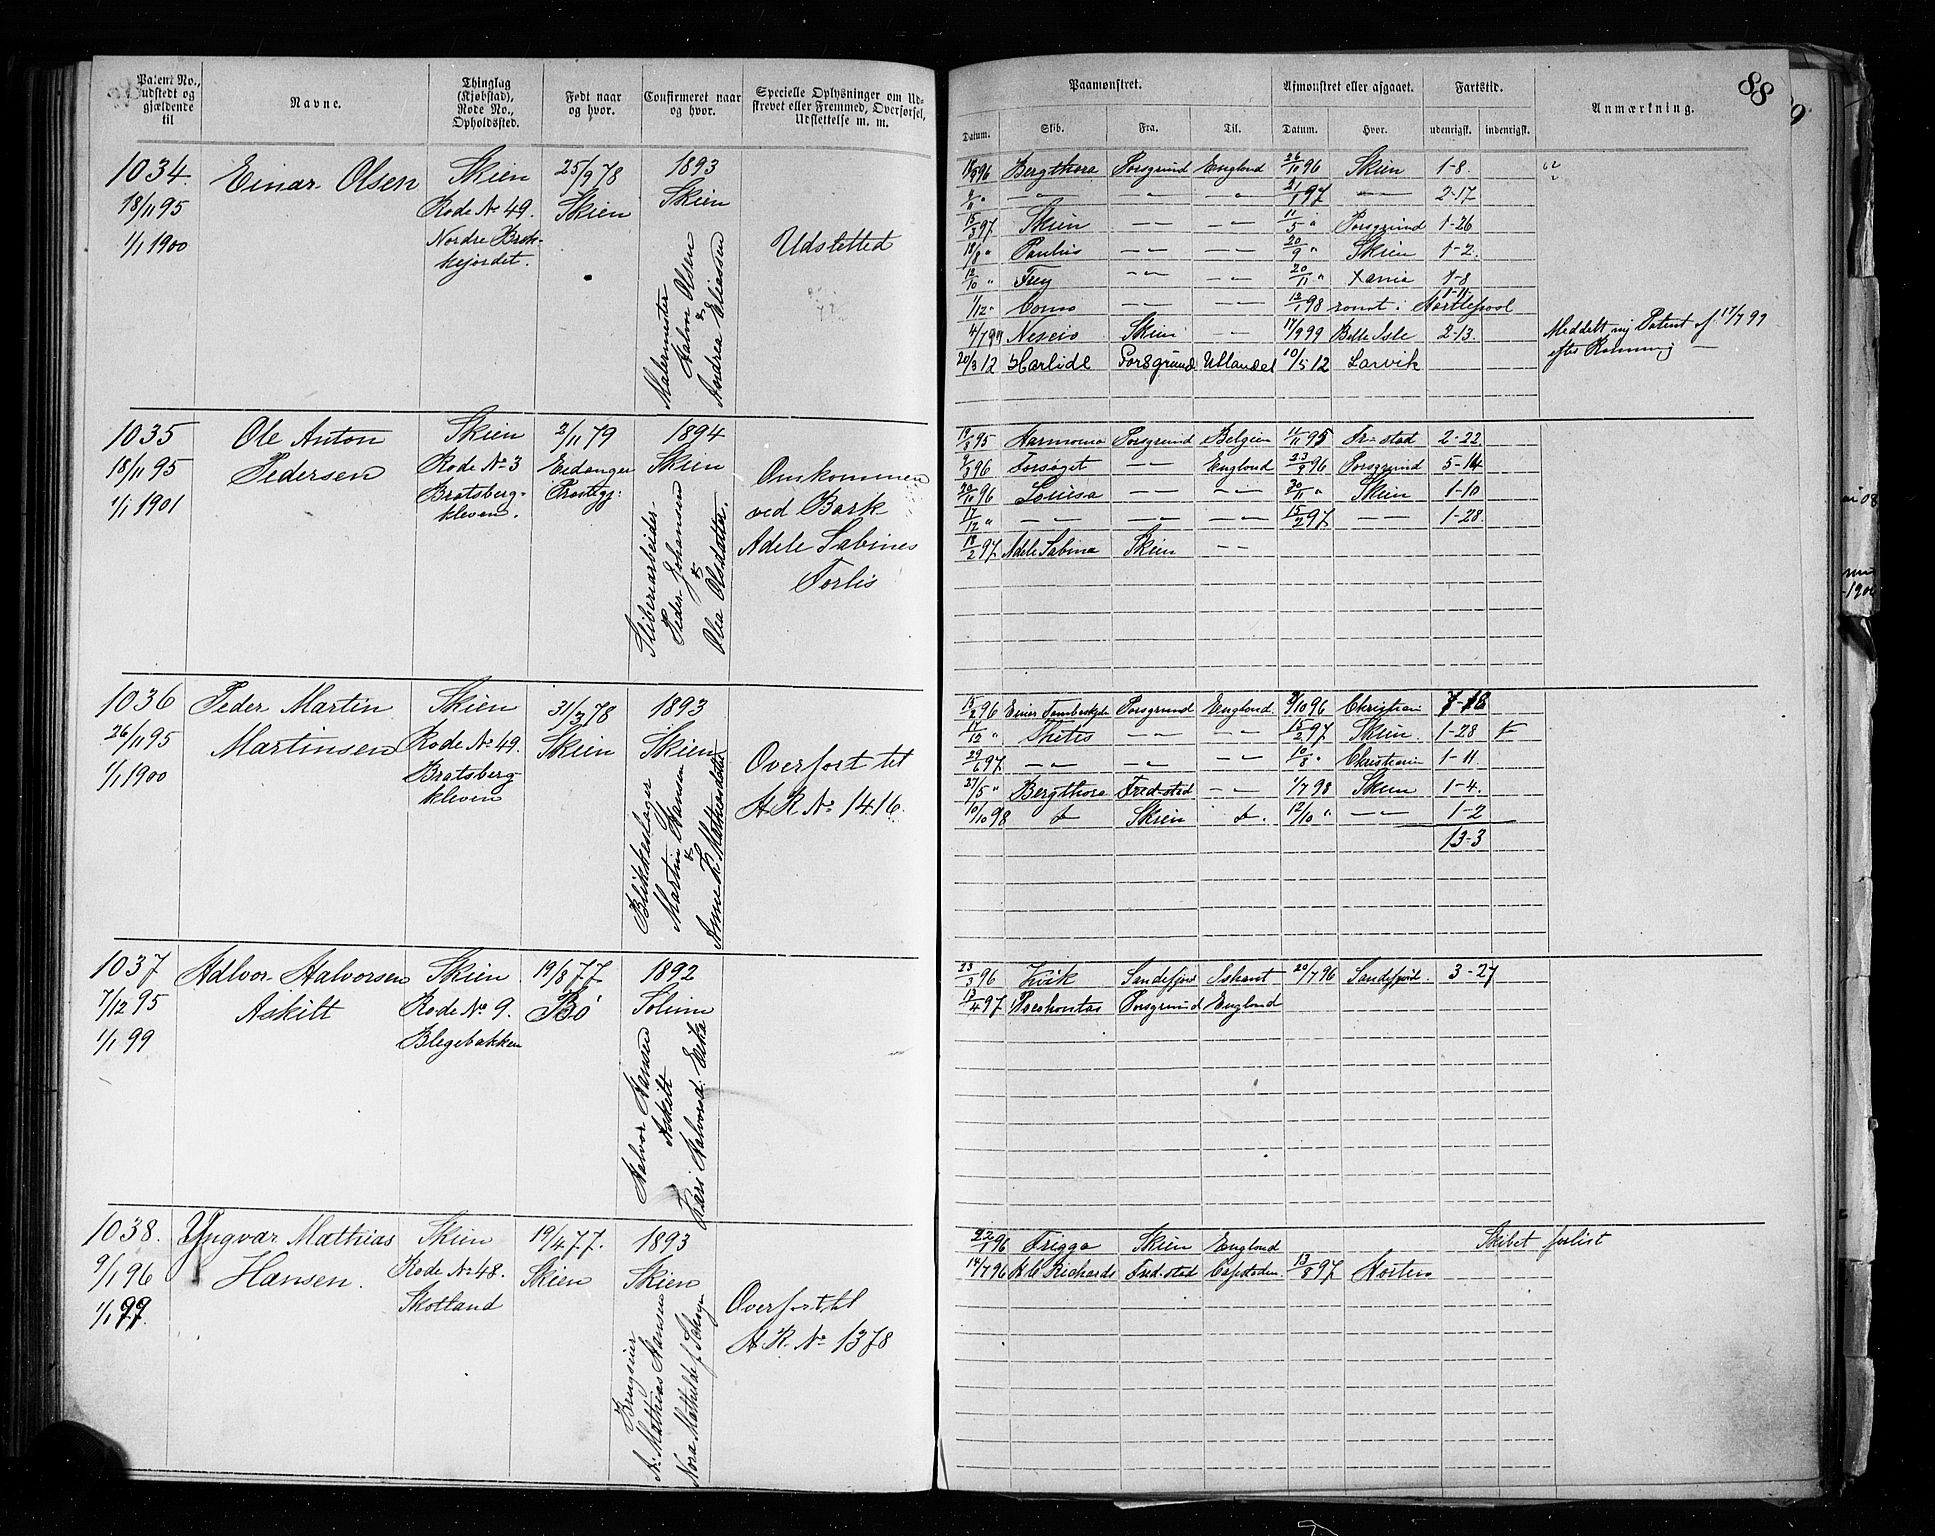 88
Patent No., udstedt og gjældende til
Navne.
Thinglag (Kjøbstad), Rode No., Opholdssted.
Født naar og hvor.
Confirmeret naar og hvor.
Specielle Oplysninger om Udskrevet eller Fremmed, Overførsel, Udslettelse m. m.
Paamønstret.
Afmønstret eller afgaaet.
Fartstid.
Anmærkning.
Datum. Skib. Fra. Til. Datum. Hvor. udenrigsk. indenrigsk.
1034. Einar Olsen Skien 25/9 78 1893
18/11 95 Rode No 49. Skien Skien
1/1 1900 Nordre Brek-
kejordet. Udslettet
Malermester
Halvor Olsen
&
Andrea Eliassen
96 Bergthora Porsgrund England 26/10 96 Skien 1-8
" — — — 21/1 97 — 2-17
15/3 97 Skien — — 11/5 " Porsgrund 1-26
18/8 " Paulus — — 20/9 " Skien 1-2
12/10 " Frey — — 20/11 " Xania 1-8
1/12 " Como — — 12/1 98 rømt i Hartlepool 1-11
4/7 99 Nereid Skien — 17/9 99 Belle Isle 2-13.
Meddelt ny Patent af 17/7 99
20/3 12 Harlide Porsgrund Utlandet 10/5 12 Larvik
1035 Ole Anton Skien 2/11 79 1894
18/11 95 Pedersen Rode No 3 Eidanger Skien
1/1 1901 Bratsberg- Prestegj:
kleven.
Omkommen
ved Bark
Adele Sabines
Forlis
Sliberiarbeider
Peder Johansen
&
Olea Olsdatter
19/3 95 Harmonia Porsgrund Belgien 11/11 95 Fr-stad 2-22
9/3 96 Forsøget — England 23/9 96 Porsgrund 5-14
20/10 96 Louisa — — 30/11 " Skien 1-10
17/12 " — — — 15/2 97 — 1-28
18/2 97 Adele Sabina Skien —
1036 Peder Martin Skien 31/3 78 1893
26/11 95 Martinsen Rode No 49. Skien Skien
1/1 1900 Bratsberg-
kleven
Overført til
H R No 1416
Blikkeslager
Martin Hansen
&
Anne K. Mathiasdatter
15/2 96 Einer Tambeskjel Porsgrund England 3/10 96 Christiania 7-18
17/12 " Thetis — — 15/2 97 Skien. 1-28
29/6 97 — — — 10/8 " Christiania 1-11
27/5 " Bergthora Fred-stad — 1/7 98 Skien 1-4.
10/10 98 Skien 12/10 " — 1-2
13-3
1037 Halvor Halvorsen Skien 19/8 77. 1892
7/12 95 Askilt Rode No 9. Bø Solum
1/1 99 Blegebakken
Halvor Hansen
Askilt
Kari Halvorsd. Eika
23/3 96 Kvik Sandefjord Ishavet 20/7 96 Sandefjord. 3-27
13/4 97 Pocohontas Porsgrund England
1038. Yngvar Mathias Skien 19/4 77. 1893
9/1 96 Hansen. Rode No 48. Skien Skien
1/1 99. Skotland
Overført til
H. R. No 1378
Brugseier
N: Mathias Hansen
Nora Mathilde
22/1 96 Frigga Skien England Skibet forlist
14/7 96 H C Richards Fred-stad Capstaden 13/8 97 Horten